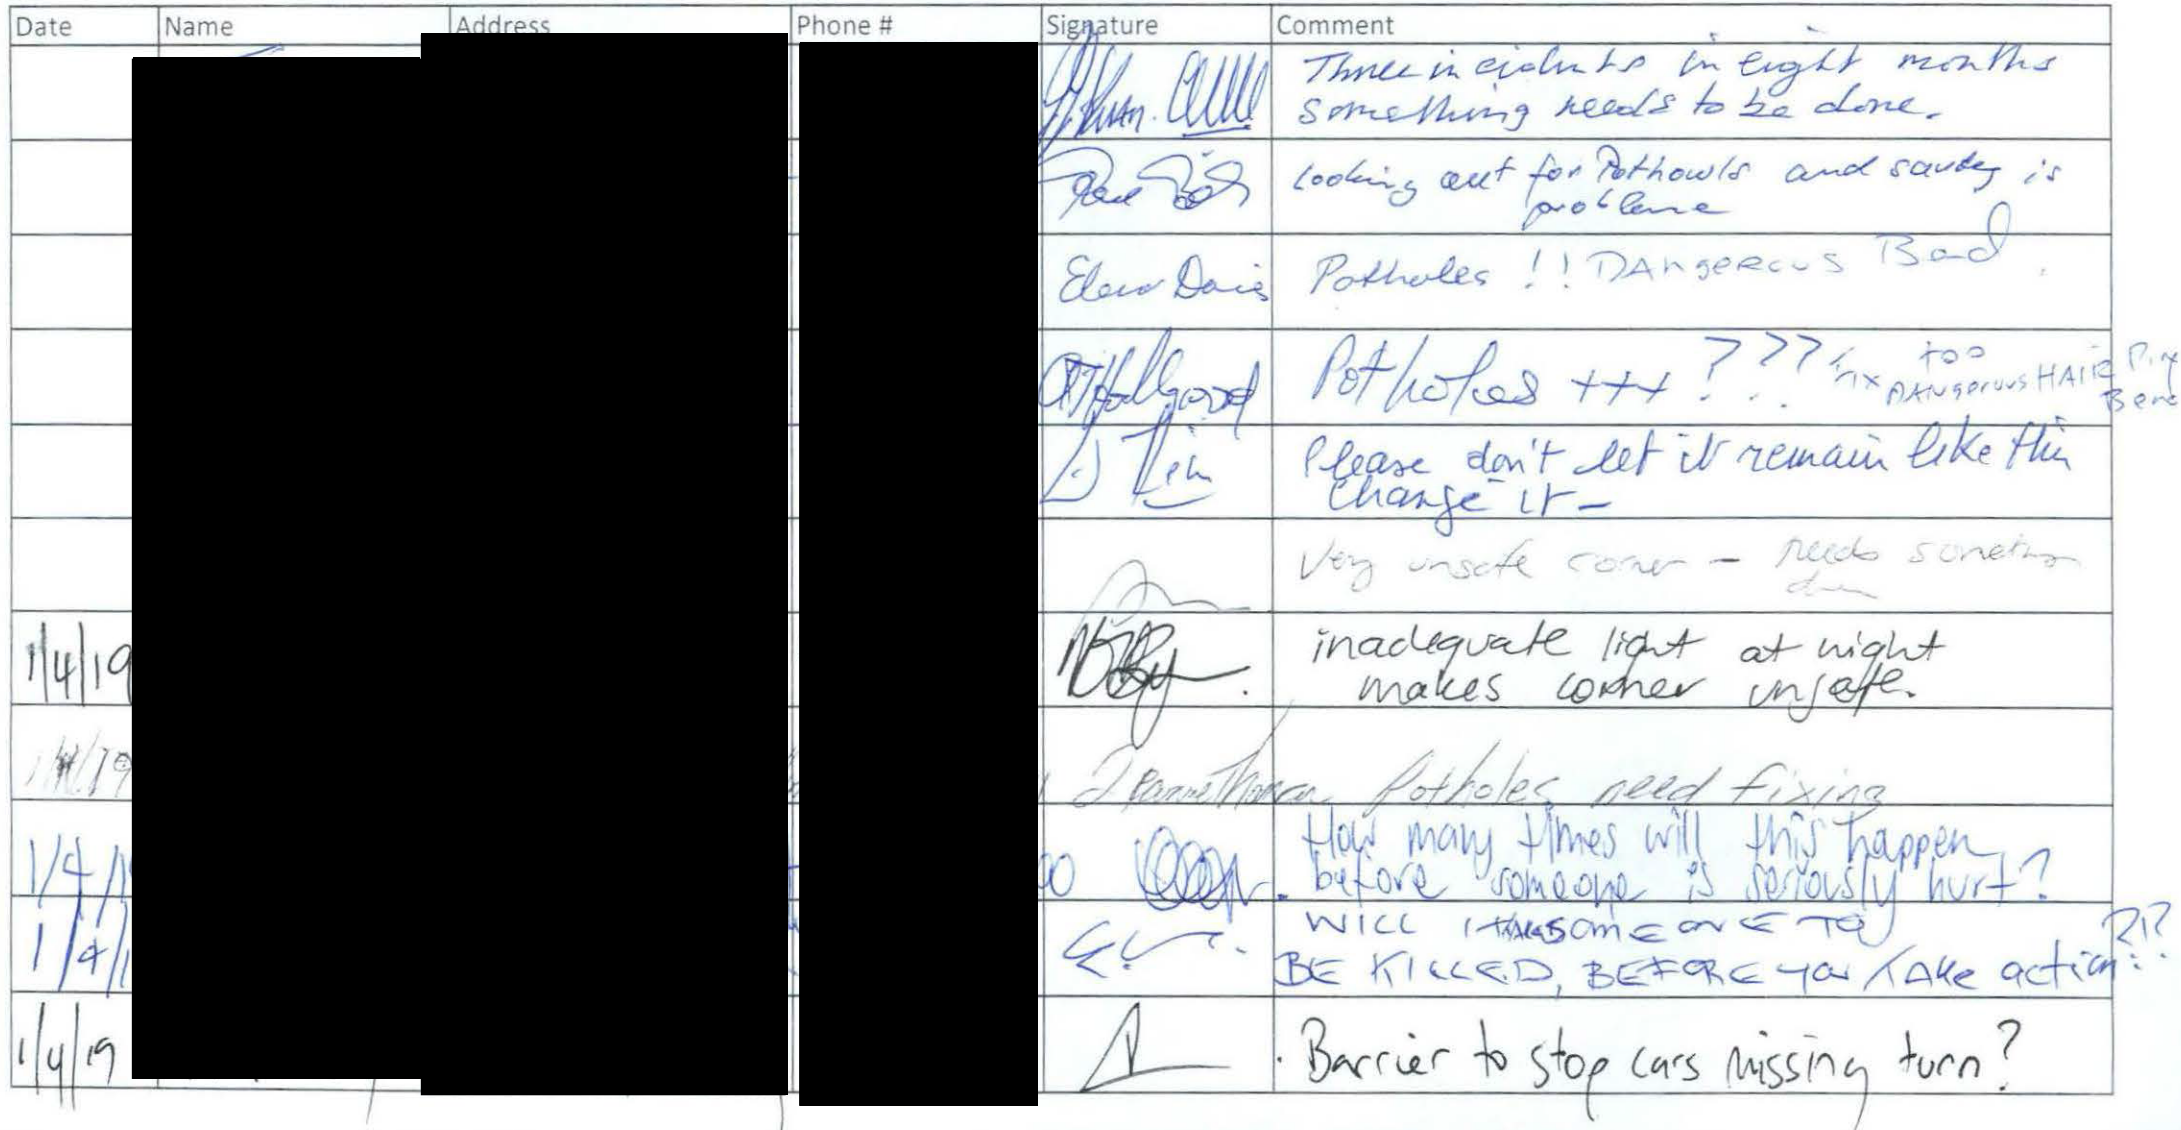 Date Name Address Phone # Signature Comment
Three incidents in eight months
something needs to be done.
Looking out for Pothowls and is
problame
Davis Potholes !! DAngerous Bad.
Potholes +++ ??? Fix too
DANgerous HAIR Pin
Please don't let it remain like this
change it -
Very unsafe corner - needs
1/4/19 inadequate light at night
makes corner unsafe.
Potholes need fixing
How many times will this happen
1/4/1 before someone is seriously hurt?
WILL SOMEONE
1/4/1 BE KILLED, BEFORE you TAKE action
1/4/19 Barrier to stop cars missing turn?